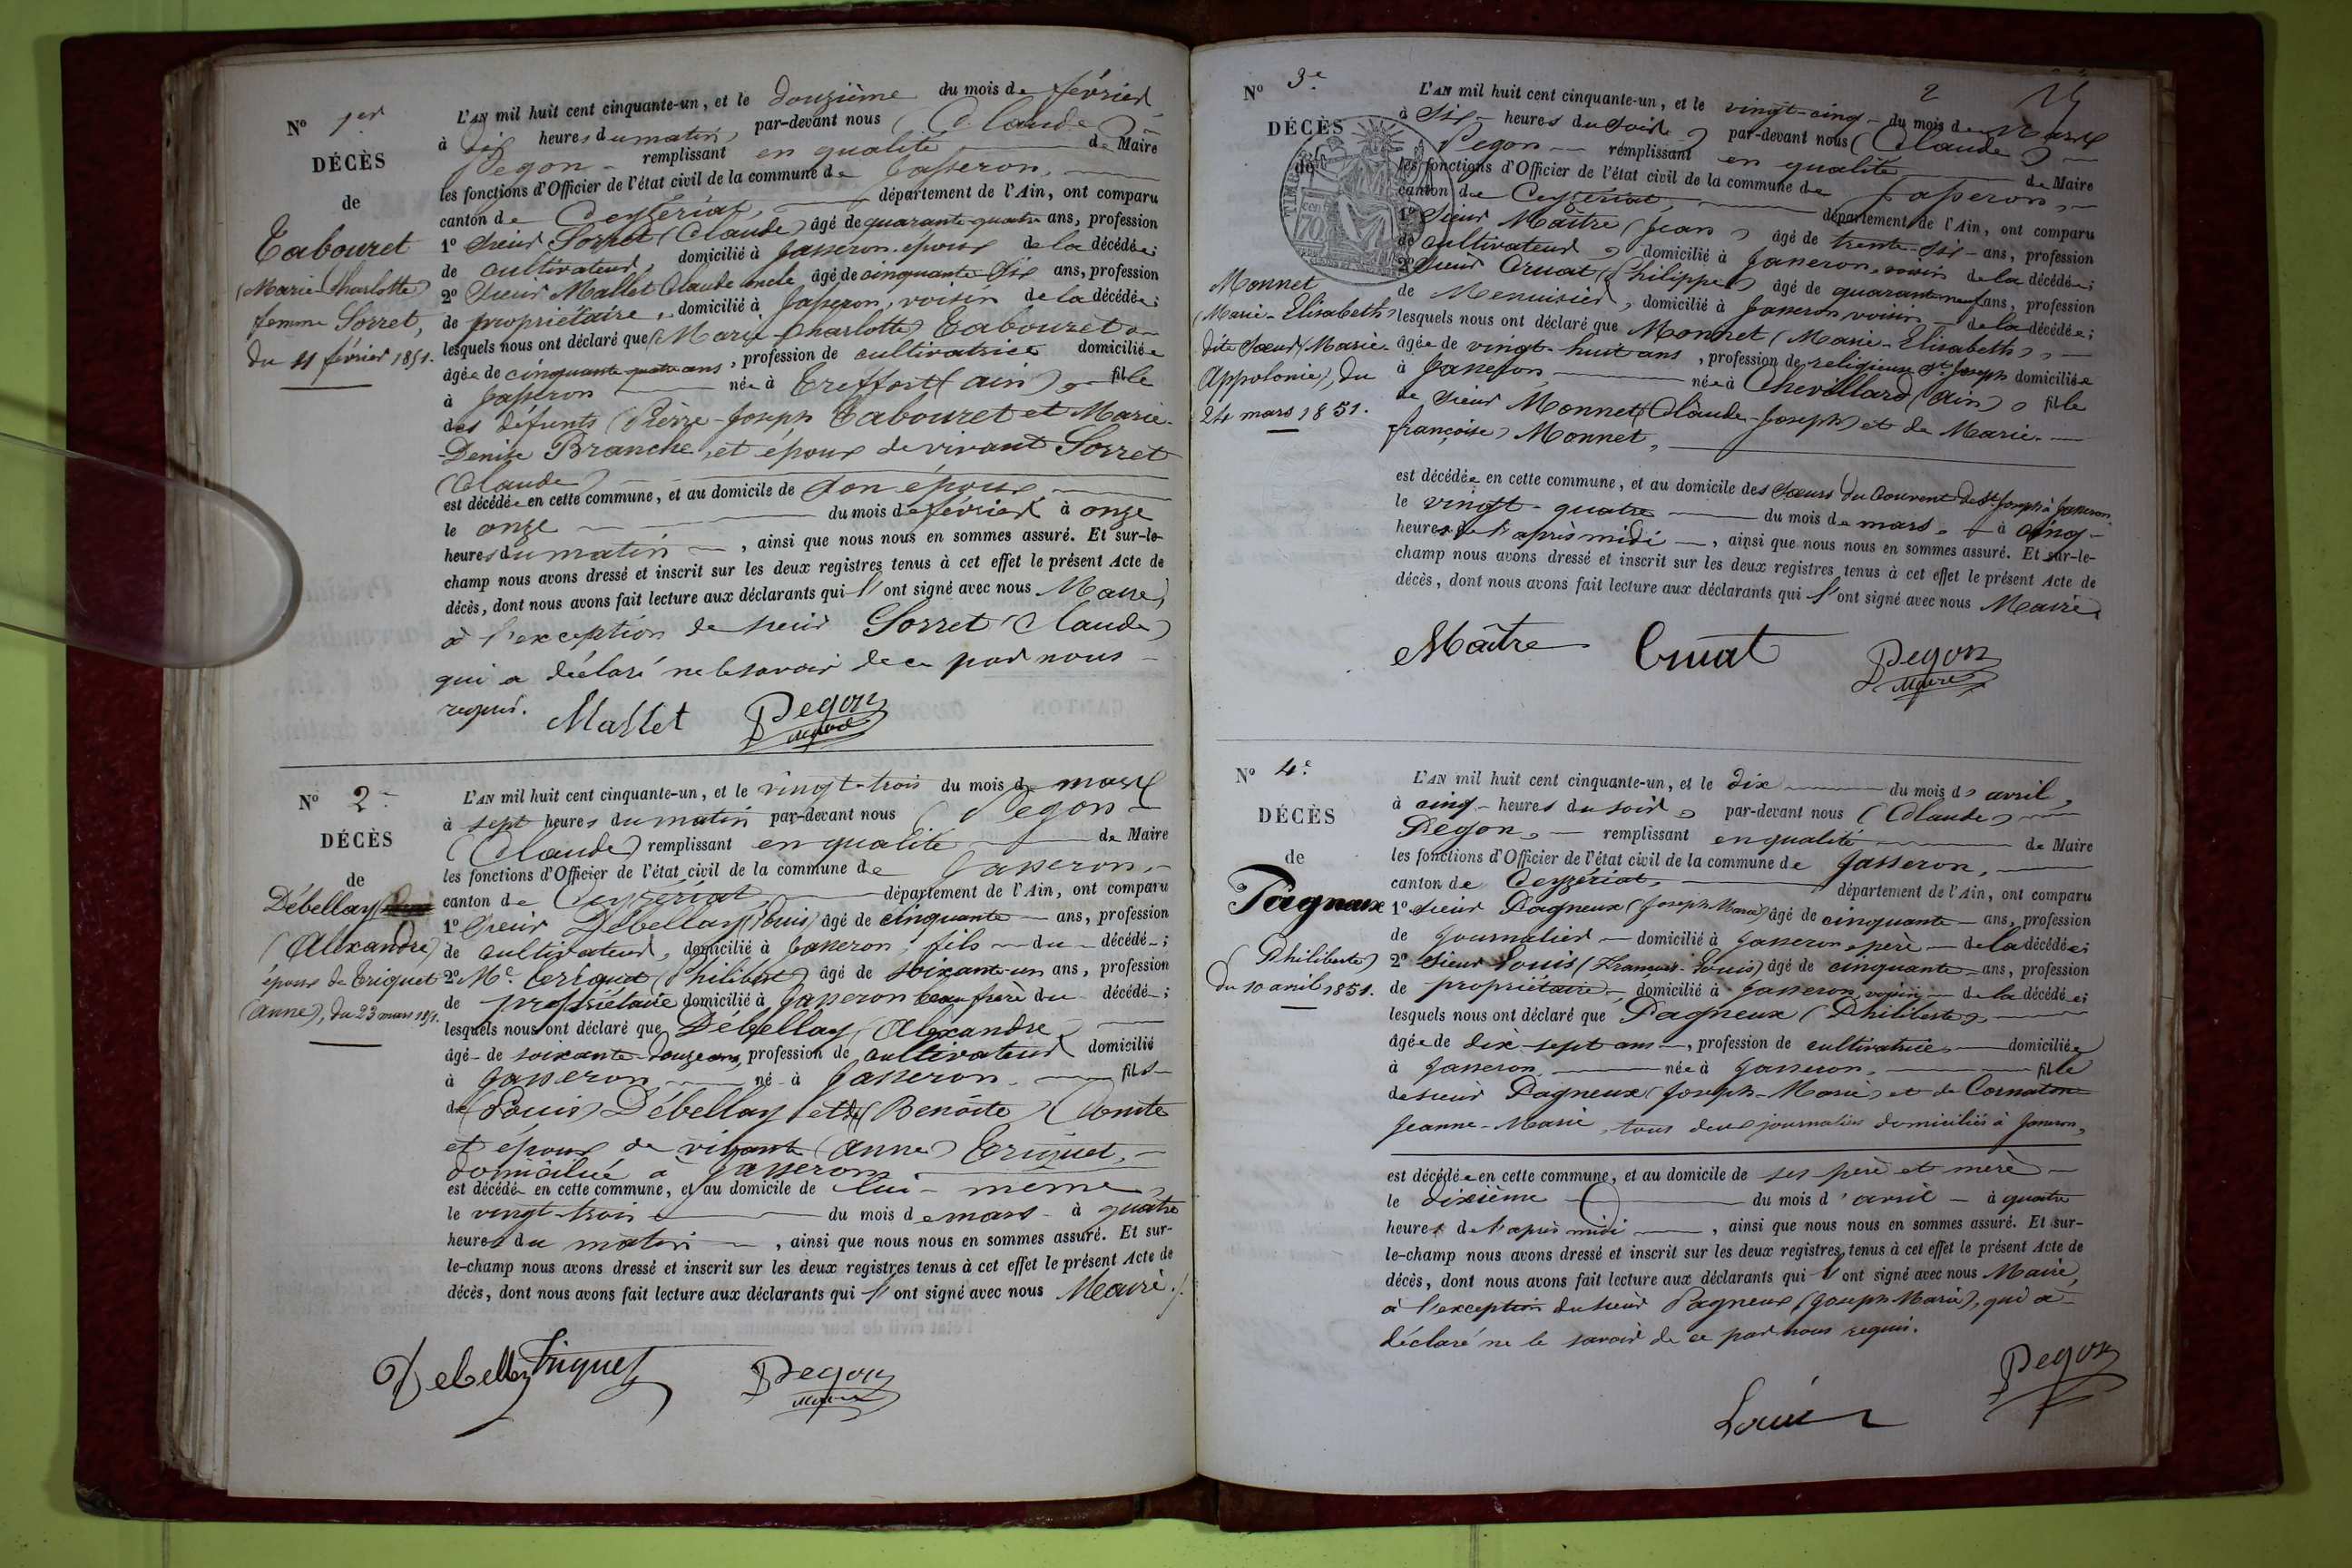 N° 1er
DÉCÈS
de
Tabouret
(Marie-Charlotte)
femme Sorret,
du 11 février 1851.
L'AN mil huit cent cinquante-un, et le douzième du mois de février
à dix heures du matin par-devant nous (Claude)
Pegon remplissant en qualité de Maire
les fonctions d'Officier de l'état civil de la commune de Jasseron,
canton de Ceyzériat, département de l'Ain, ont comparu
1° Sieur Sorret (Claude) âgé de quarante-quatre ans, profession
de cultivateur, domicilié à Jasseron, époux de la décédée;
2° Sieur Mallet Claude âgé de cinquante-six ans, profession
de propriétaire, domicilié à Jasseron, voisin de la décédée;
lesquels nous ont déclaré que (Marie-Charlotte) Tabouret
âgée de cinquante-quatre ans, profession de cultivatrice domiciliée
à Jasseron née à Treffort (ain), fille
des défunts (Pierre-Joseph Tabouret et Marie-
Denise Branche, et épouse de vivant Sorret
(Claude)
est décédée en cette commune, et au domicile de son époux
le onze du mois de février à onze
heures du matin, ainsi que nous nous en sommes assuré. Et sur-le-
champ nous avons dressé et inscrit sur les deux registres tenus à cet effet le présent Acte de
décès, dont nous avons fait lecture aux déclarants qui l'ont signé avec nous Maire,
à l'exception de sieur Sorret (Claude)
qui a déclaré ne le savoir de ce par nous
requis.
Mallet Pegon
Maire
N° 2
DÉCÈS
de
Débellay
(Alexandre)
époux de Triquet
(Anne), du 23 mars 1851.
L'AN mil huit cent cinquante-un, et le vingt-trois du mois de mars
à sept heures du matin par-devant nous Pegon
(Claude) remplissant en qualité de Maire
les fonctions d'Officier de l'état civil de la commune de Jasseron,
canton de Ceyzériat, département de l'Ain, ont comparu
1° Sieur Débellay (Louis) âgé de cinquante ans, profession
de cultivateur, domicilié à Jasseron, fils du décédé;
2° Mr. Triquet (Philibert) âgé de soixante-un ans, profession
de propriétaire domicilié à Jasseron beau frère du décédé;
lesquels nous ont déclaré que Débellay (Alexandre)
âgé de soixante-douze ans, profession de cultivateur domicilié
à Jasseron né à Jasseron, fils
de (Louis) Débellay et de (Benoite) Comte
et époux de vivante (Anne) Triquet,
domiciliée à Jasseron
est décédé en cette commune, et au domicile de lui-même
le vingt-trois du mois de mars à quatre
heures du matin, ainsi que nous nous en sommes assuré. Et sur-
le-champ nous avons dressé et inscrit sur les deux registres tenus à cet effet le présent Acte de
décès, dont nous avons fait lecture aux déclarants qui l'ont signé avec nous Maire.
Debellay Triquet Pegon
Maire
2
N° 3e
DÉCÈS
de
Monnet
(Marie-Elisabeth)
dite Sœur (Marie-
Appolonie), du
24 mars 1851.
L'AN mil huit cent cinquante-un, et le vingt-cinq du mois de Mars
à six heures du soir par-devant nous (Claude)
Pegon remplissant en qualité de Maire
les fonctions d'Officier de l'état civil de la commune de Jasseron,
canton de Ceyzériat, département de l'Ain, ont comparu
1° Sieur Maître (Jean) âgé de trente-six ans, profession
de cultivateur, domicilié à Jasseron, voisin de la décédée;
2° Sieur Cruat (Philippe) âgé de quarante-neuf ans, profession
de Menuisier, domicilié à Jasseron voisin de la décédée;
lesquels nous ont déclaré que Monnet (Marie-Elisabeth)
âgée de vingt-huit ans, profession de religieuse St. Joseph domiciliée
à Jasseron, née à Chevillard (ain), fille
de sieur Monnet (Claude-Joseph) et de Marie-
françoise) Monnet,
est décédée en cette commune, et au domicile des Sœurs du Couvent de St. Joseph à Jasseron
le vingt-quatre du mois de mars à cinq
heures de l'après midi, ainsi que nous nous en sommes assuré. Et sur-le-
champ nous avons dressé et inscrit sur les deux registres tenus à cet effet le présent Acte de
décès, dont nous avons fait lecture aux déclarants qui l'ont signé avec nous Maire
Maître Cruat Pegon
Maire
TIMB
70
cent
N° 4e
DÉCÈS
de
Pagneux
(Philiberte)
du 10 avril 1851.
L'AN mil huit cent cinquante-un, et le dix du mois d'avril,
à cinq heures du soir, par-devant nous (Claude)
Pegon, remplissant en qualité de Maire
les fonctions d'Officier de l'état civil de la commune de Jasseron,
canton de Ceyzériat, département de l'Ain, ont comparu
1° Sieur Pagneux (Joseph-Marie) âgé de cinquante ans, profession
de journalier domicilié à Jasseron, père de la décédée;
2° Sieur Louis (François-Louis) âgé de cinquante ans, profession
de propriétaire, domicilié à Jasseron, voisin de la décédée;
lesquels nous ont déclaré que Pagneux (Philiberte),
âgée de dix-sept ans, profession de cultivatrice domiciliée
à Jasseron, née à Jasseron, fille
de sieur Pagneux (Joseph-Marie) et de Cornaton
Jeanne-Marie, tous deux journaliers domiciliés à Jasseron,
est décédée en cette commune, et au domicile de ses père et mère
le dixième du mois d'avril à quatre
heures de l'après midi, ainsi que nous nous en sommes assuré. Et sur-
le-champ nous avons dressé et inscrit sur les deux registres tenus à cet effet le présent Acte de
décès, dont nous avons fait lecture aux déclarants qui l'ont signé avec nous Maire,
à l'exception du sieur Pagneux (Joseph-Marie), qui a
déclaré ne le savoir de ce par nous requis.
Louis Pegon